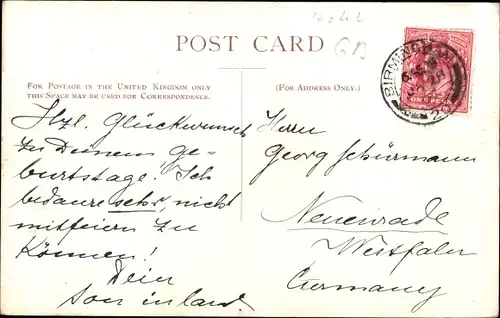 POST CARD
FOR POSTAGE IN THE UNITED KINGDOM ONLY
THIS SPACE MAY BE USED FOR CORRESPONDENCE.
(FOR ADDRESS ONLY.)
GB
BIRMINGHAM
ONE PENNY
Hzl. Glückwunsch
zu Deinem Ge-
burtstage! Ich
bedaure sehr, nicht
mitfeiern zu
können!
Dein
Herrn
Georg Schürmann
Neuenrade
Westfalen
Germany